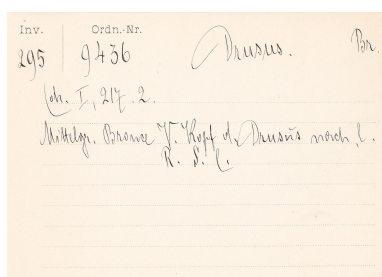 Inv. Ordn.-Nr.
295 9436 Drusus. Br.
Coh. I, 217. 2.
Mittelgr. Bronce V. Kopf d. Drusus nach l.
R. S. C.